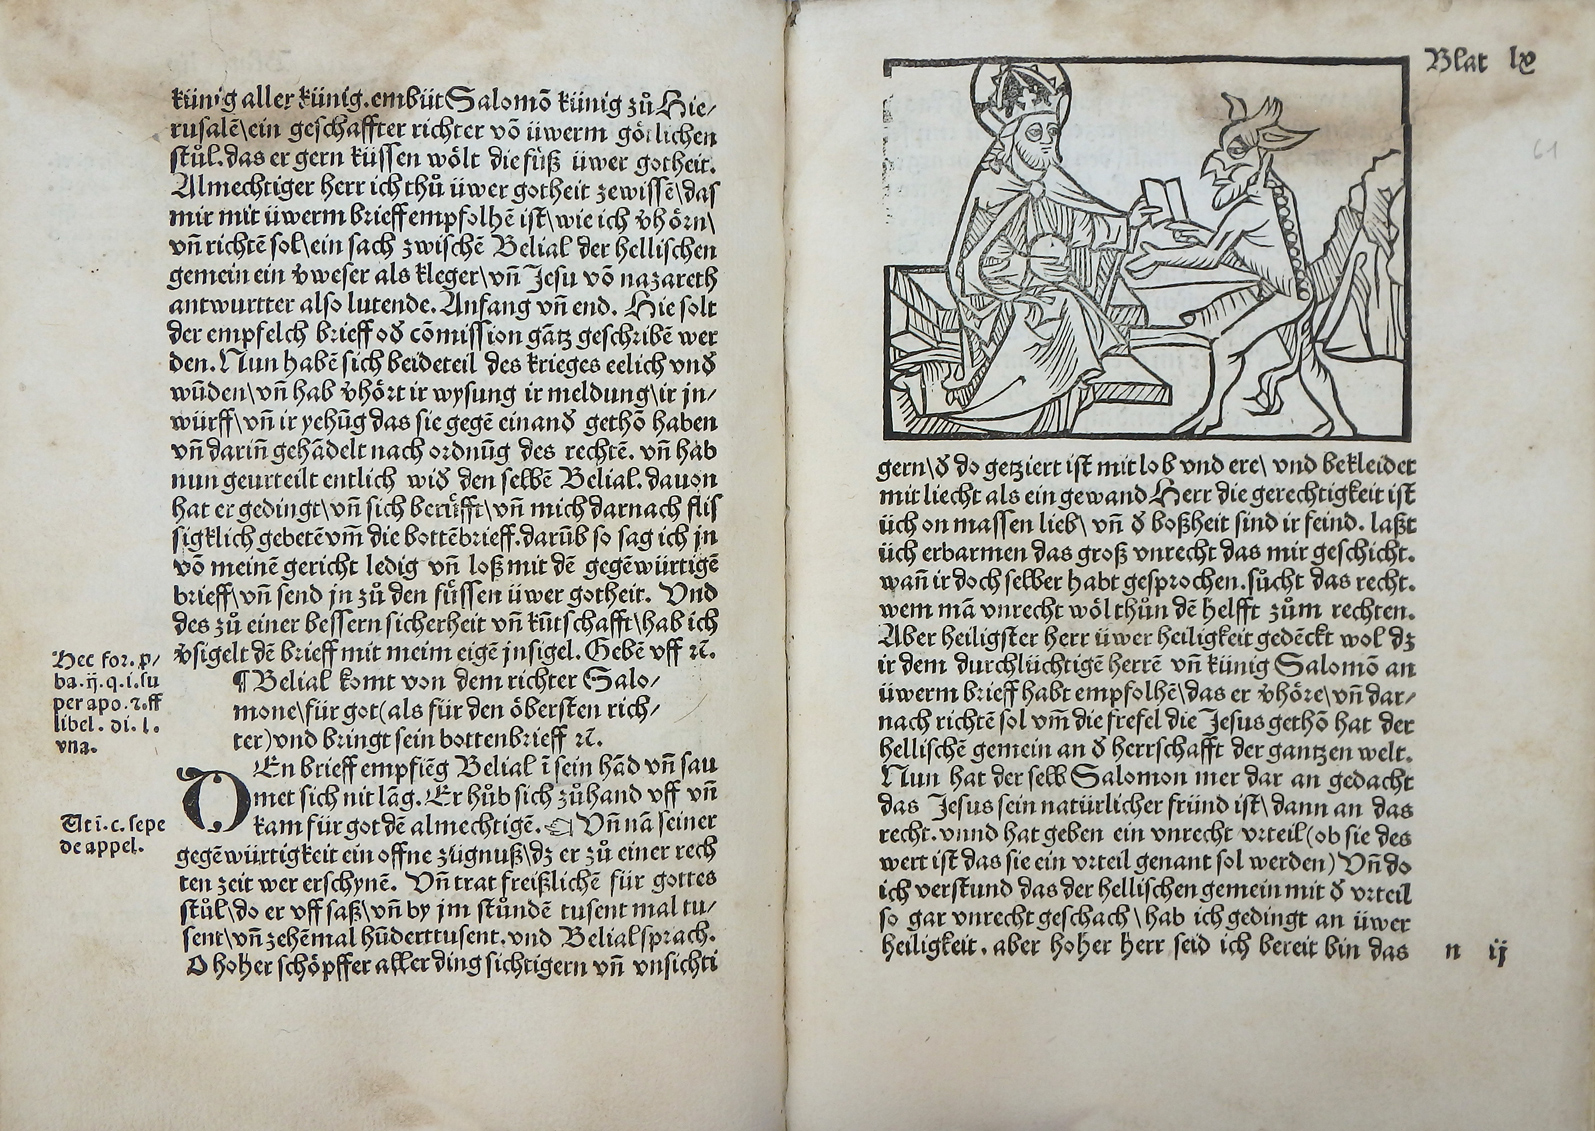 künig aller künig. embüt Salomō künig zů Hie/
rusalē\ein geschaffter richter vō üwerm götlichen
stůl. das er gern küssen wölt die füß üwer gotheit.
Almechtiger herr ich thů üwer gotheit zewissē\das
mir mit üwerm brieff empfolhē ist\wie ich v̄hörn\
vn̄ richtē sol\ein sach zwischē Belial der hellischen
gemein ein v̄weser als kleger\vn̄ Jesu vō nazareth
antwurtter also lutende. Anfang vn̄ end. Hie solt
der empfelch brieff od̄ cōmission gātz geschribē wer
den. Nun habē sich beideteil des krieges eelich vnd̄
wūden\vn̄ hab v̄hört ir wysung ir meldung\ir jn/
würff\vn̄ ir yehūg das sie gegē einand̄ gethō haben
vn̄ darin̄ gehādelt nach ordnūg des rechtē. vn̄ hab
nun geurteilt entlich wid̄ den selbē Belial. dauon
hat er gedingt\vn̄ sich berůfft\vn̄ mich darnach flis
sigklich gebetē vm̄ die bottēbrieff. darūb so sag ich jn
vō meinē gericht ledig vn̄ loß mit dē gegēwürtigē
brieff\vn̄ send jn zů den füssen üwer gotheit. Vnd
des zů einer bessern sicherheit vn̄ kūtschafft\hab ich
v̄sigelt dē brieff mit meim eigē jnsigel. Gebē vff ꝛc̄.
¶ Belial komt von dem richter Salo/
mone\für got(als für den öbersten rich/
ter)vnd bringt sein bottenbrieff ꝛc̄.
DEn brieff empfiēg Belial ī sein hād vn̄ sau
met sich nit lāg. Er hůb sich zůhand vff vn̄
kam für got dē almechtigē. ☜ Vn̄ nā seiner
gegēwürtigkeit ein offne zügnuß\dz er zů einer rech
ten zeit wer erschynē. Vn̄ trat freißlichē für gottes
stůl\do er vff saß\vn̄ by jm stůndē tusent mal tu/
sent\vn̄ zehēmal hūderttusent. vnd Belial sprach.
O hoher schöpffer aller ding sichtigern vn̄ vnsichti
Hec for. p/
ba. ij. q. i. su
per apo. ꝛ. ff
libel. di. l.
vna.
Ut ī. c. sepe
de appel.
Blat lx
61
gern\d̄ do getziert ist mit lob vnd ere\ vnd bekleidet
mit liecht als ein gewand Herr die gerechtigkeit ist
üch on massen lieb\ vn̄ d̄ boßheit sind ir feind. laßt
üch erbarmen das groß vnrecht das mir geschicht.
wan̄ ir doch selber habt gesprochen. sůcht das recht.
wem mā vnrecht wöl thůn dē helfft zům rechten.
Aber heiligster herr üwer heiligkeit gedēckt wol dz
ir dem durchlüchtigē herrē vn̄ künig Salomō an
üwerm brieff habt empfolhē\das er v̄höre\vn̄ dar/
nach richtē sol vm̄ die frefel die Jesus gethō hat der
hellischē gemein an d̄ herrschafft der gantzen welt.
Nun hat der selb Salomon mer dar an gedacht
das Jesus sein natürlicher fründ ist\ dann an das
recht. vnnd hat geben ein vnrecht vrteil(ob sie des
wert ist das sie ein vrteil genant sol werden) Vn̄ do
ich verstund das der hellischen gemein mit d̄ vrteil
so gar vnrecht geschach\ hab ich gedingt an üwer
heiligkeit. aber hoher herr seid ich bereit bin das
n ij